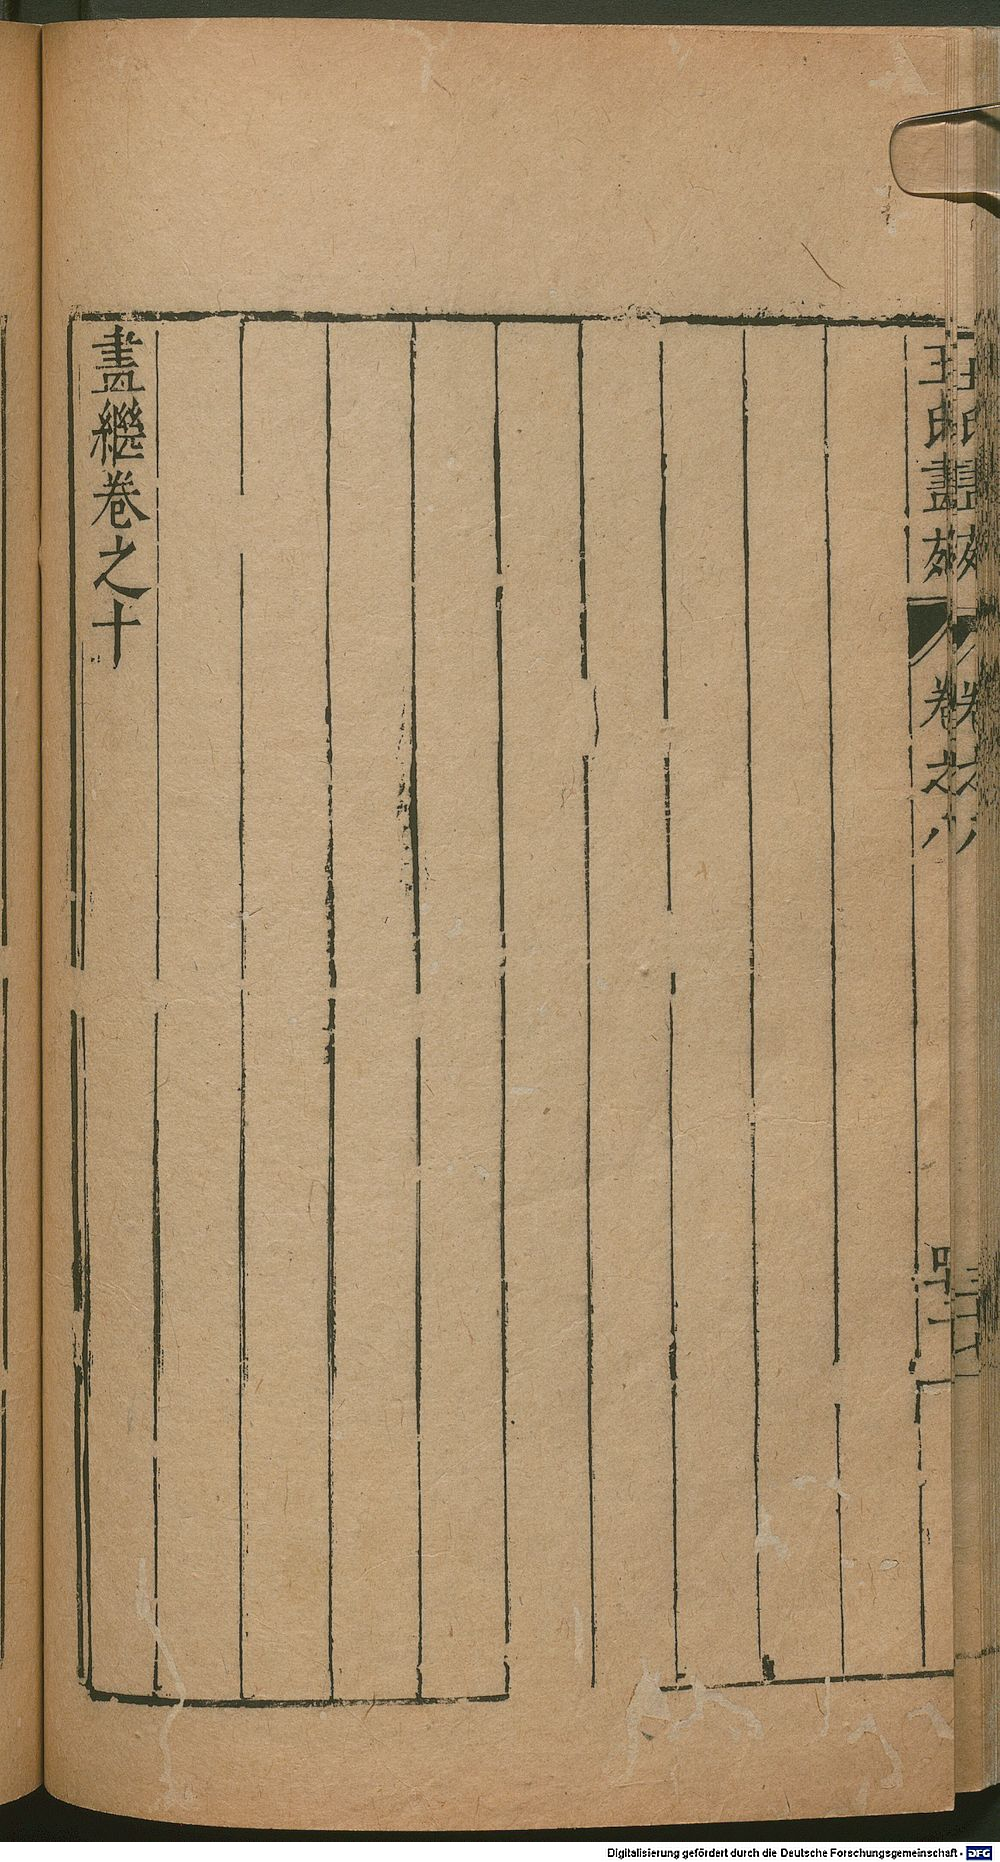 王氏畫苑
卷之八
畫繼卷之十
Digitalisierung gefördert durch die Deutsche Forschungsgemeinschaft - DFG